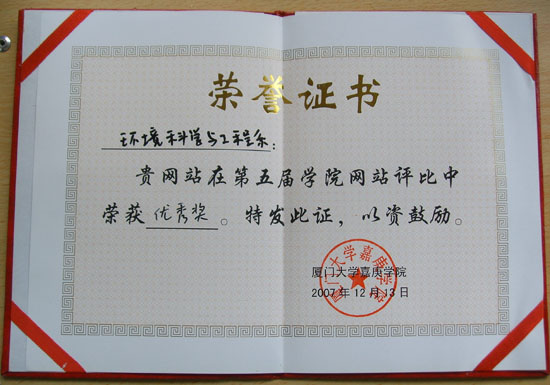 荣誉证书
环境科学与工程系：
贵网站在第五届学院网站评比中
荣获 优秀奖 。特发此证，以资鼓励。
厦门大学嘉庚学院
厦门大学嘉庚学院
2007年12月13日